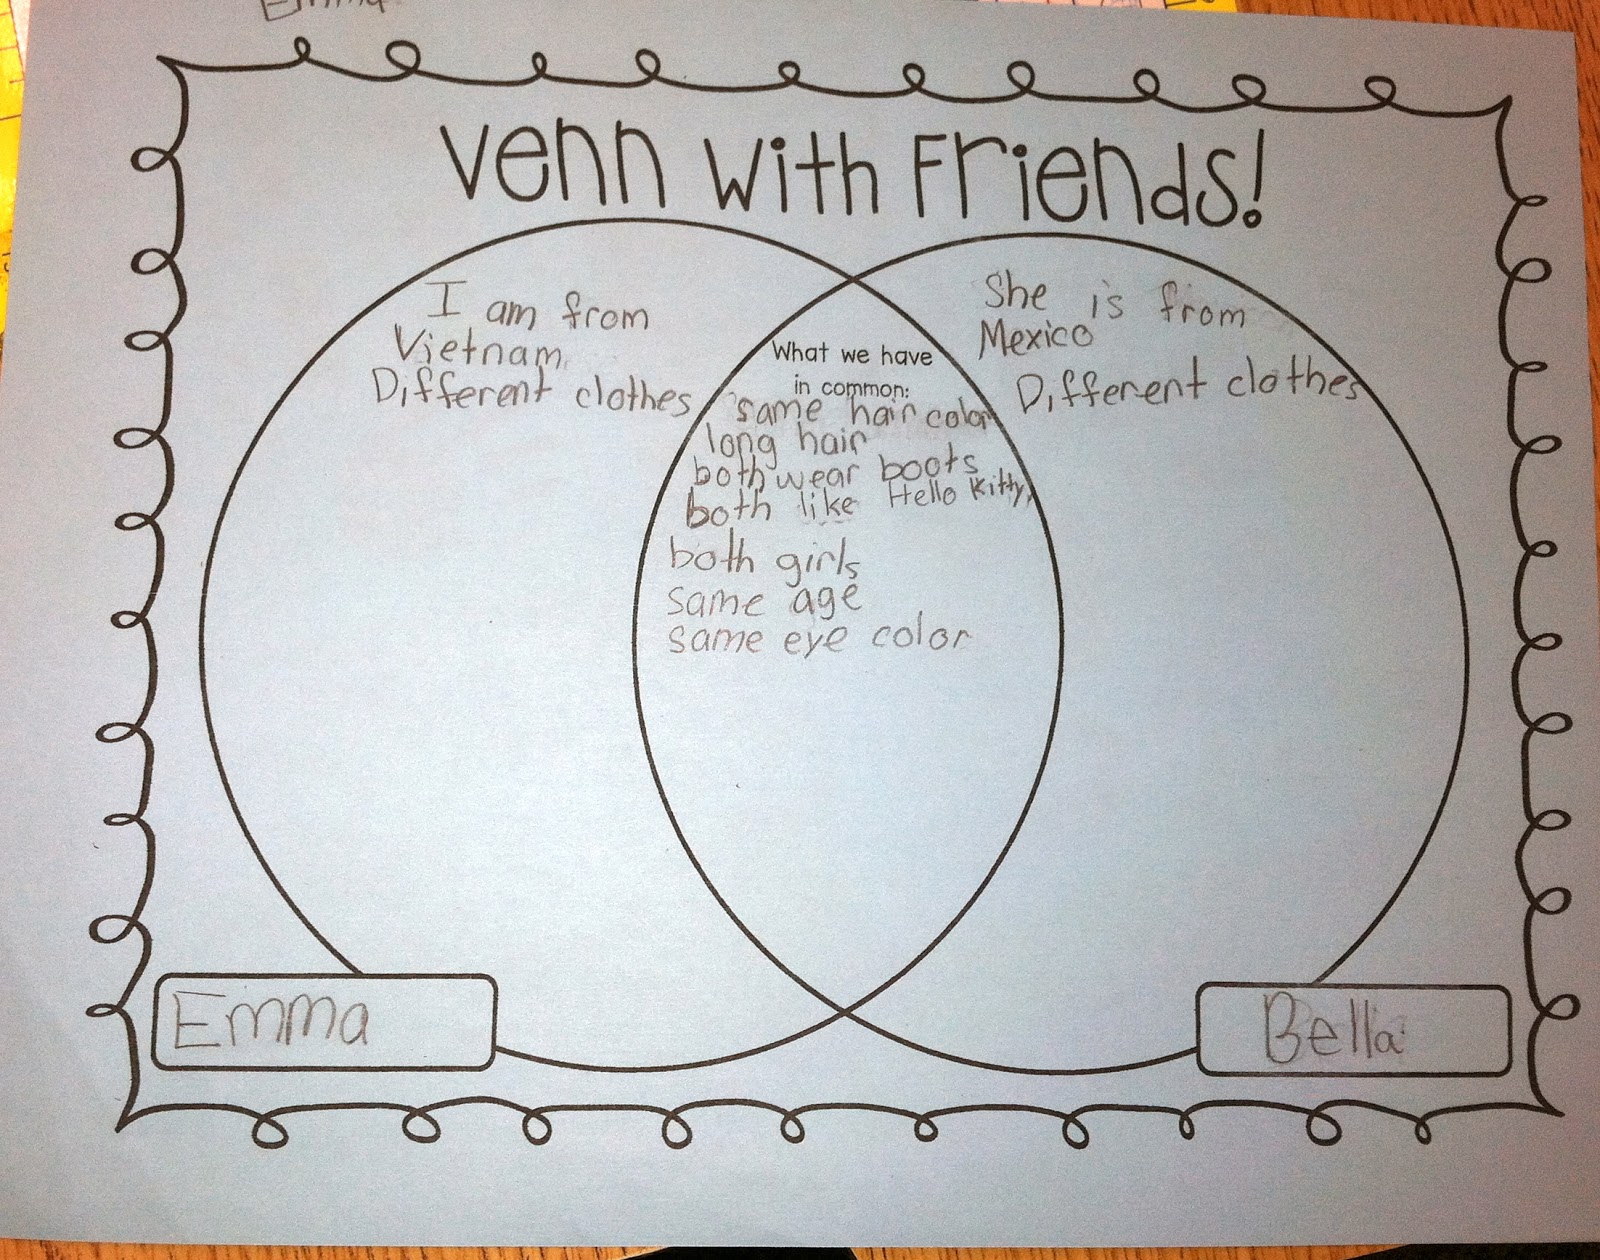 Emma
Venn With Friends!
I am from
Vietnam
Different clothes
What we have
in common:
same hair color
long hair
both wear boots
both like Hello Kitty,
both girls
same age
same eye color
She is from
Mexico
Different clothes
Emma
Bella